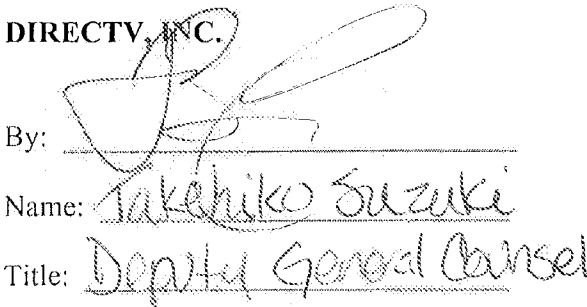 DIRECTV, INC.
By:
Name: Takehiko Suzuki
Title: Deputy General Counsel